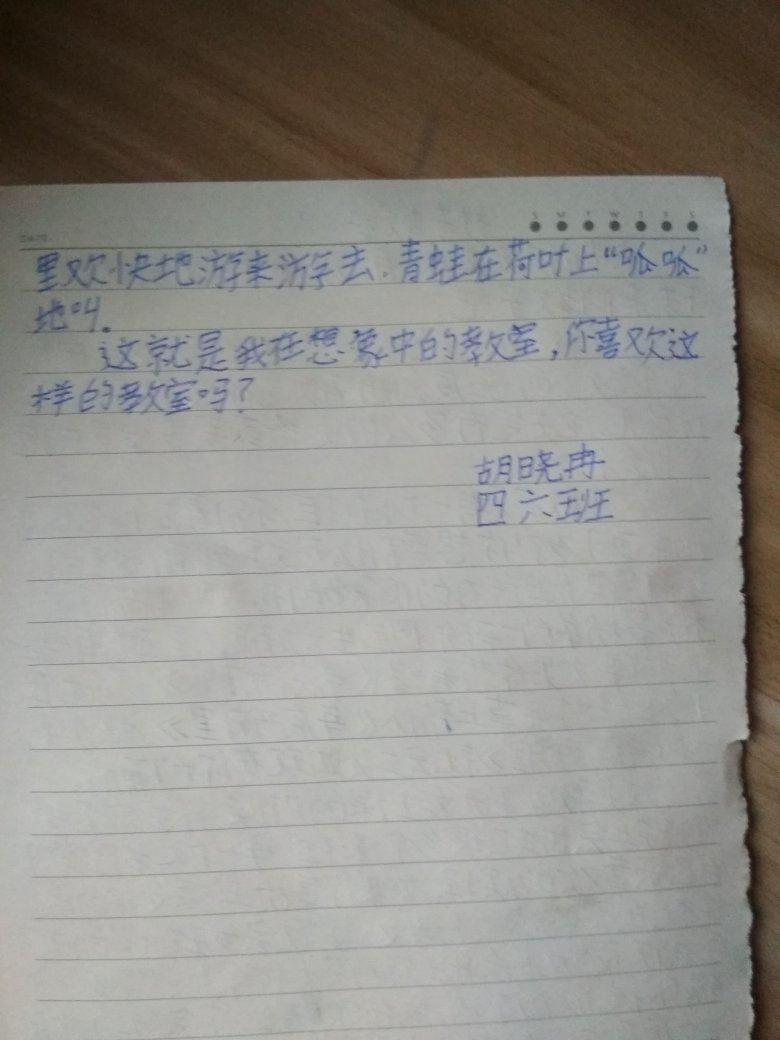 DATE
S M T W T F S
里欢快地游来游去.青蛙在荷叶上“呱呱”
地叫。
这就是我在想象中的教室,你喜欢这
样的教室吗?
胡晓冉
四六班